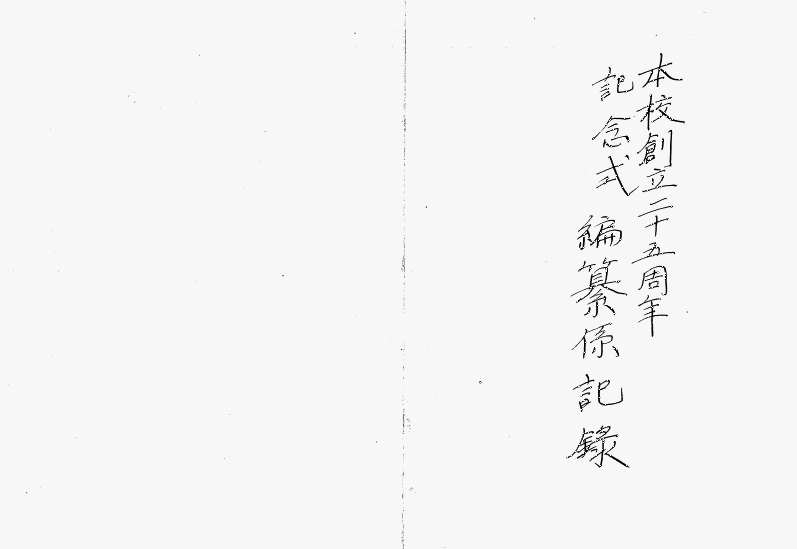 本校創立二十五周年
記念式 編纂係記録